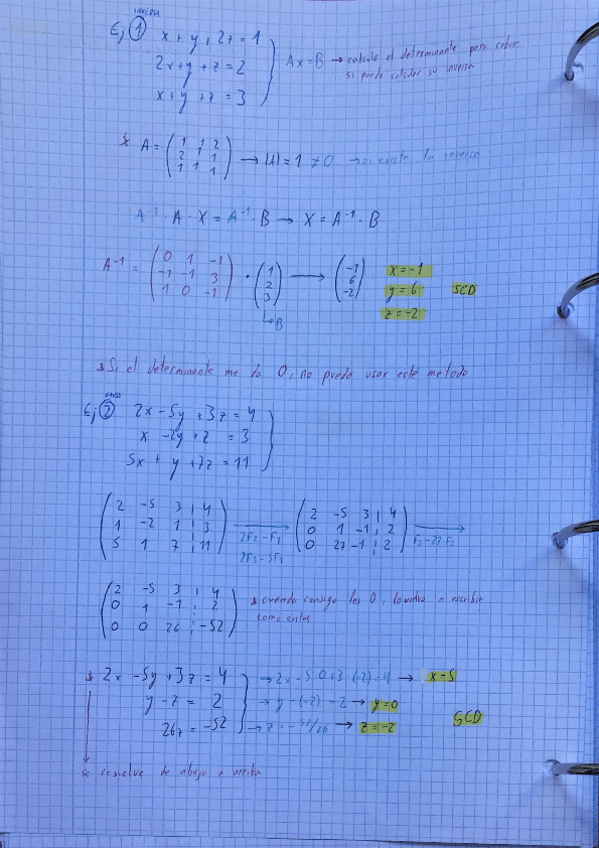 INVERSA
Ej ① x + y + 2z = 1
2x + y + z = 2
x + y + z = 3
Ax = B → calculo el determinante para saber
si puedo calcular su inversa
* A = ( 1 1 2
2 1 1
1 1 1 ) → |A| = 1 ≠ 0 → si existe la inversa
A⁻¹ · A · X = A⁻¹ · B → X = A⁻¹ · B
A⁻¹ = ( 0 1 -1
-1 -1 3
1 0 -1 ) · ( 1
2
3 ) → ( -1
6
-2 )
↳B
x = -1
y = 6
z = -2
SCD
* Si el determinante me da 0, no puedo usar este metodo
Ej ② 2x - 5y + 3z = 4
x - 2y + z = 3
5x + y + 7z = 11
( 2 -5 3 | 4
1 -2 1 | 3
5 1 7 | 11 )
2F2 - F1
2F3 - 5F1
( 2 -5 3 | 4
0 1 -1 | 2
0 27 -1 | 2 )
F3 - 27F2
( 2 -5 3 | 4
0 1 -1 | 2
0 0 26 | -52 )
* cuando consigo los 0, lo vuelvo a escribir
como antes
* 2x - 5y + 3z = 4 → 2x - 5·0 + 3·(-2) = 4 → x = 5
y - z = 2 → y - (-2) = 2 → y = 0
26z = -52 → z = -52/26 → z = -2
SCD
se resuelve de abajo a arriba